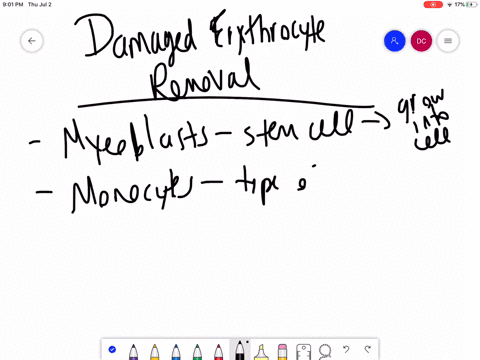 9:01 PM Thu Jul 2
17%
DC
Damaged Erythrocyte
Removal
- Myeoblasts - stem cell → grow
into
cell
- Monocytes - type o